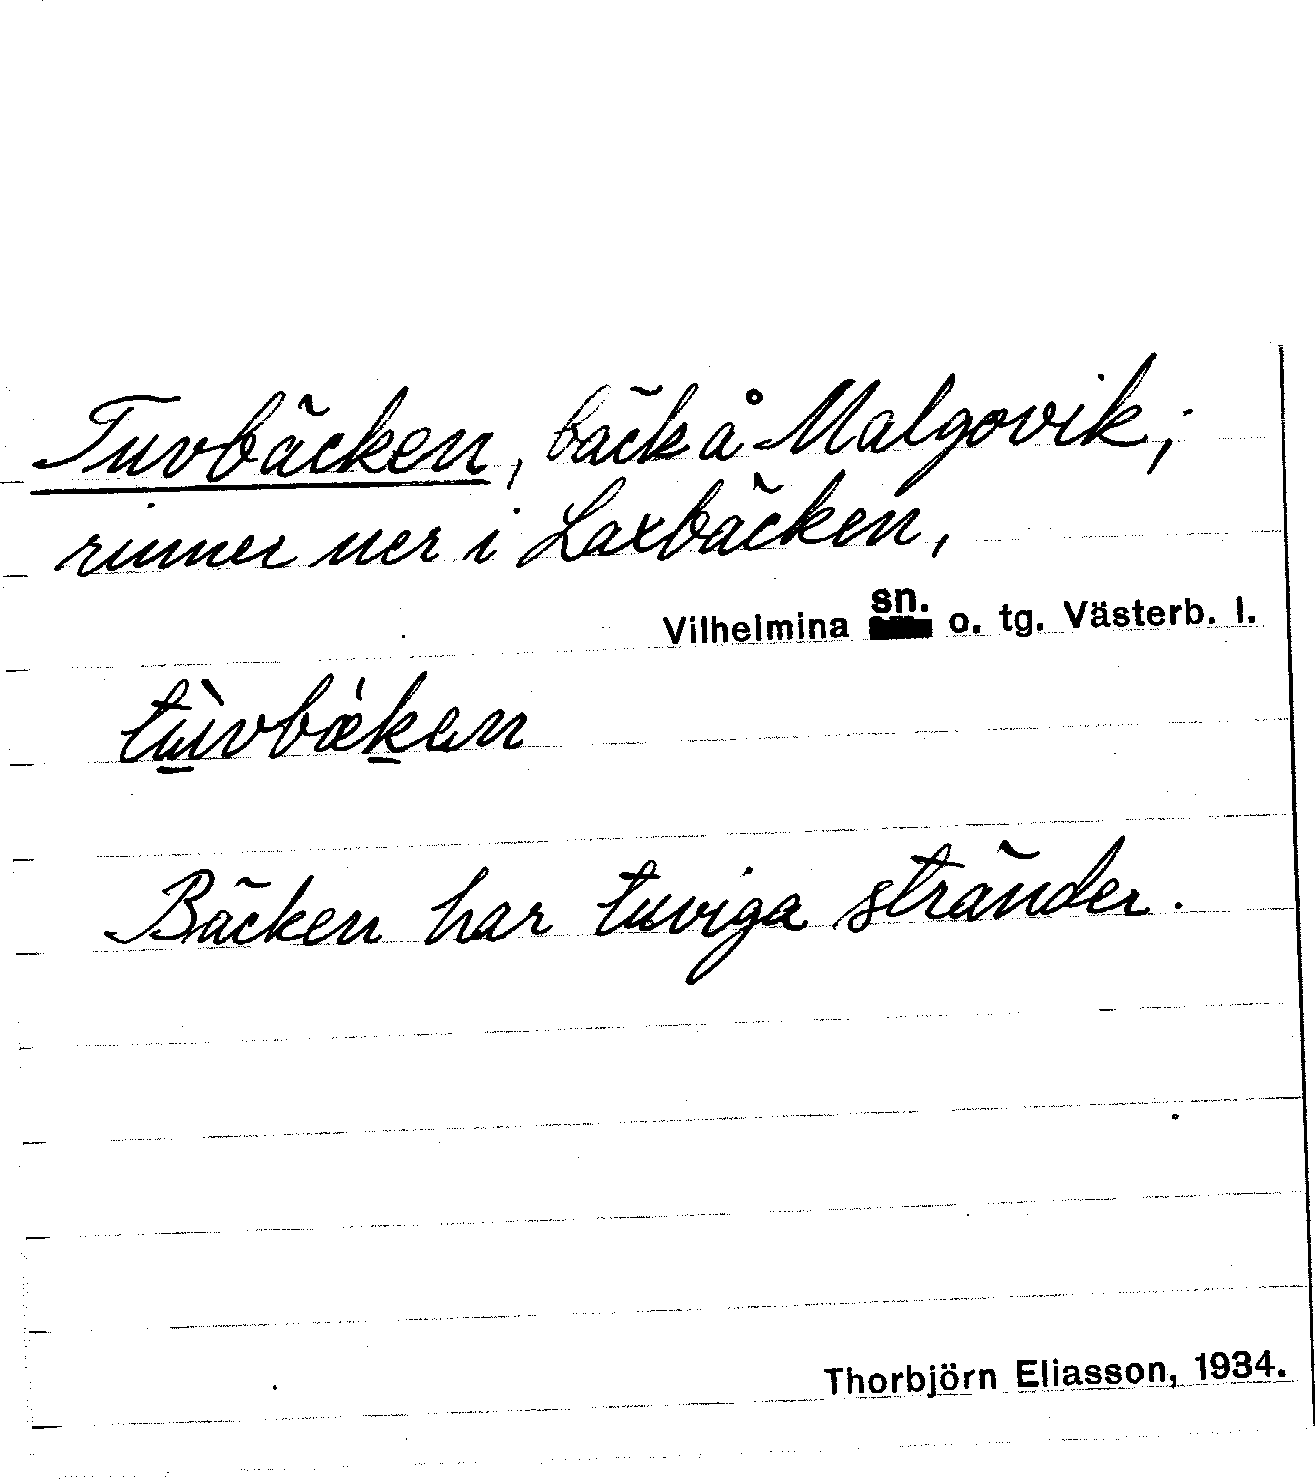 Tuvbäcken, bäck å Malgovik;
rinner ner i Laxbäcken,
Vilhelmina sn. o. tg. Västerb. l.
tù̲vbǽk̲en
Bäcken har tuviga stränder.
Thorbjörn Eliasson, 1934.